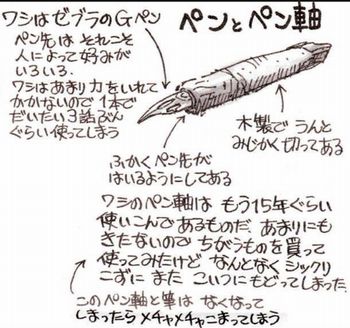 ペンとペン軸
ワシはゼブラのGペン
ペン先は それこそ
人によって好みが
いろいろ.
ワシはあまり力をいれて
かかないので1本で
だいたい3話ぶん
ぐらい使ってしまう
木製で うんと
みじかく切ってある
ふかくペン先が
はいるようにしてある
ワシのペン軸は もう15年ぐらい
使いこんであるものだ. あまりにも
きたないので ちがうものを買って
使ってみたけど なんとなく シックリ
こずに また こいつにもどってしまった.
このペン軸と筆は なくなって
しまったら メチャメチャこまってしまう